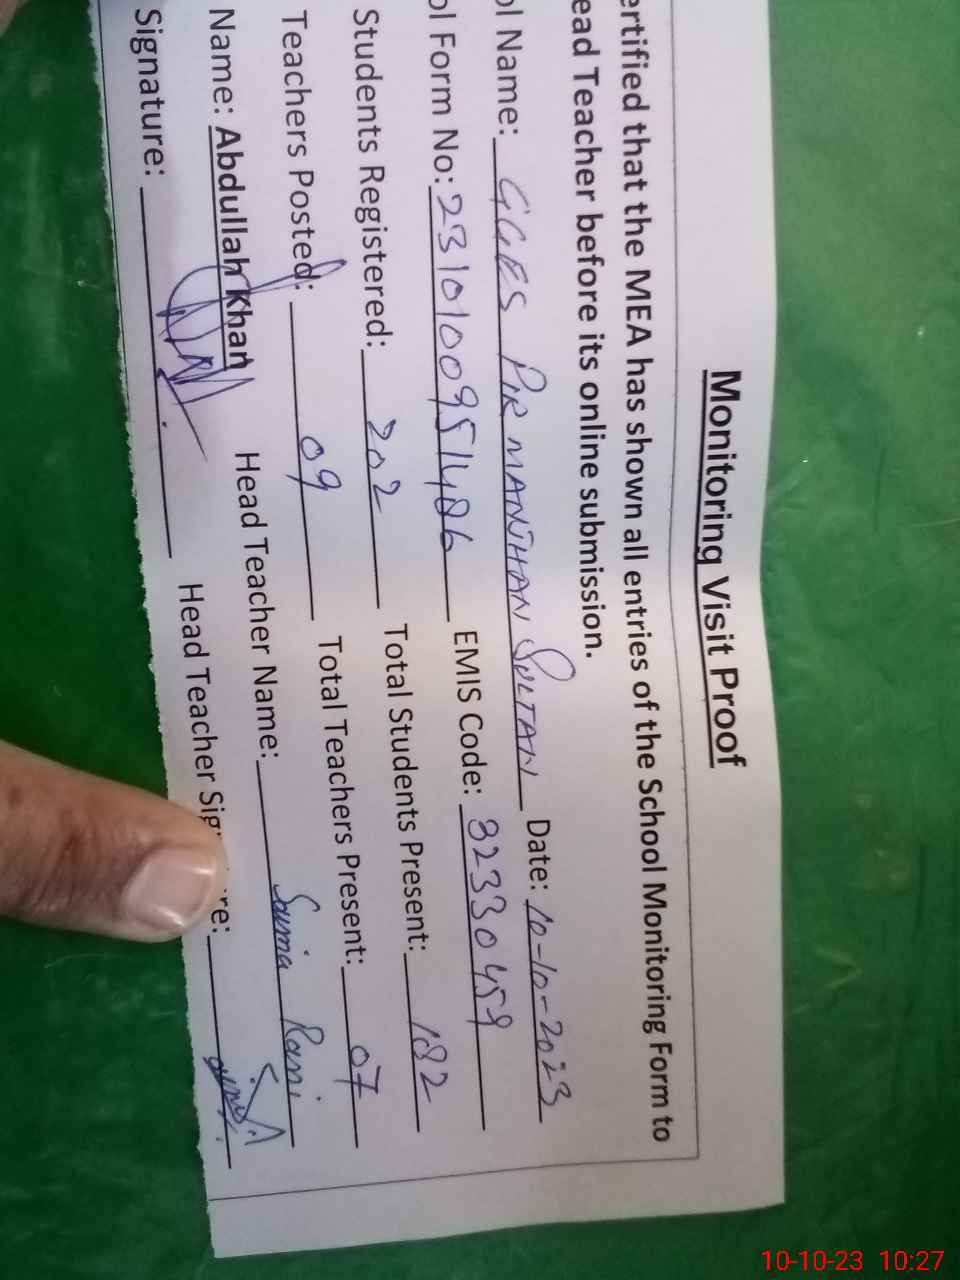 Monitoring Visit Proof
ertified that the MEA has shown all entries of the School Monitoring Form to
ead Teacher before its online submission.
ol Name: GGES PIR MANJHAN SULTAN Date: 10-10-2023
ol Form No: 2310100951486 EMIS Code: 32330459
Students Registered: 202 Total Students Present: 182
Teachers Posted: 09 Total Teachers Present: 07
Name: Abdullah Khan Head Teacher Name: Saima Rani
Signature: Head Teacher Sig re:
10-10-23 10:27